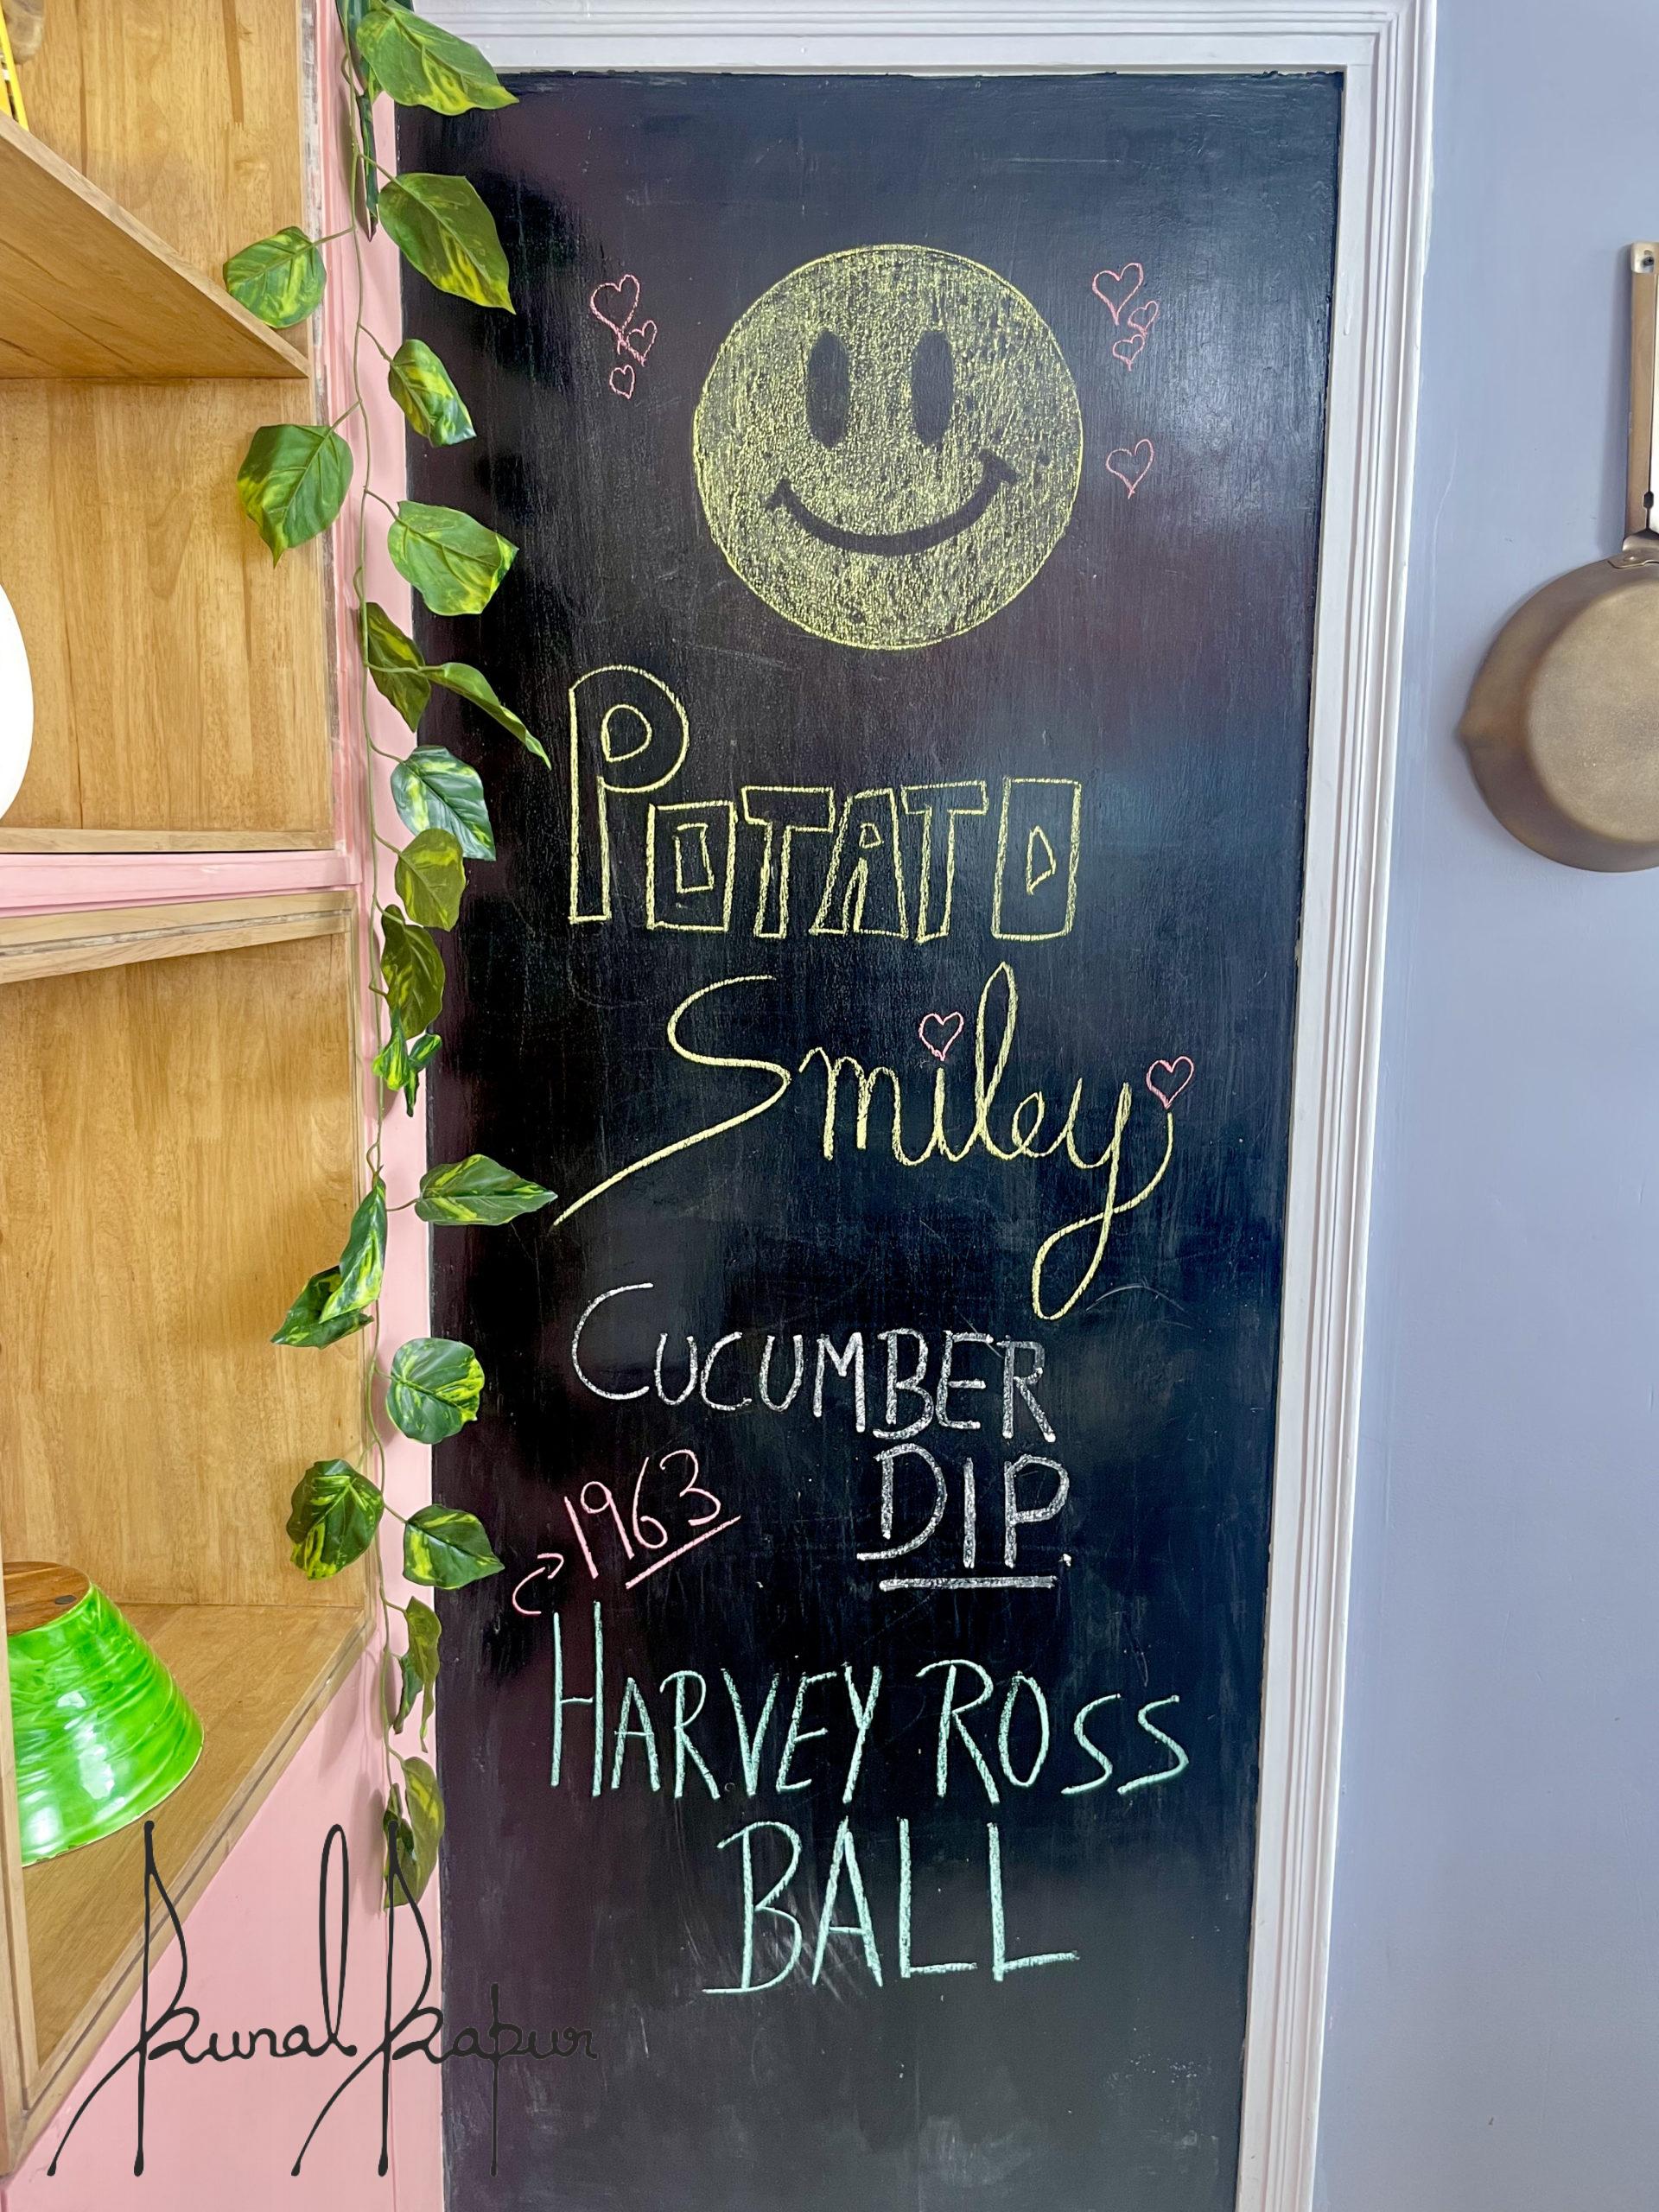 POTATO
Smiley
CUCUMBER
DIP.
1963
HARVEY ROSS
BALL
Kunal Kapur